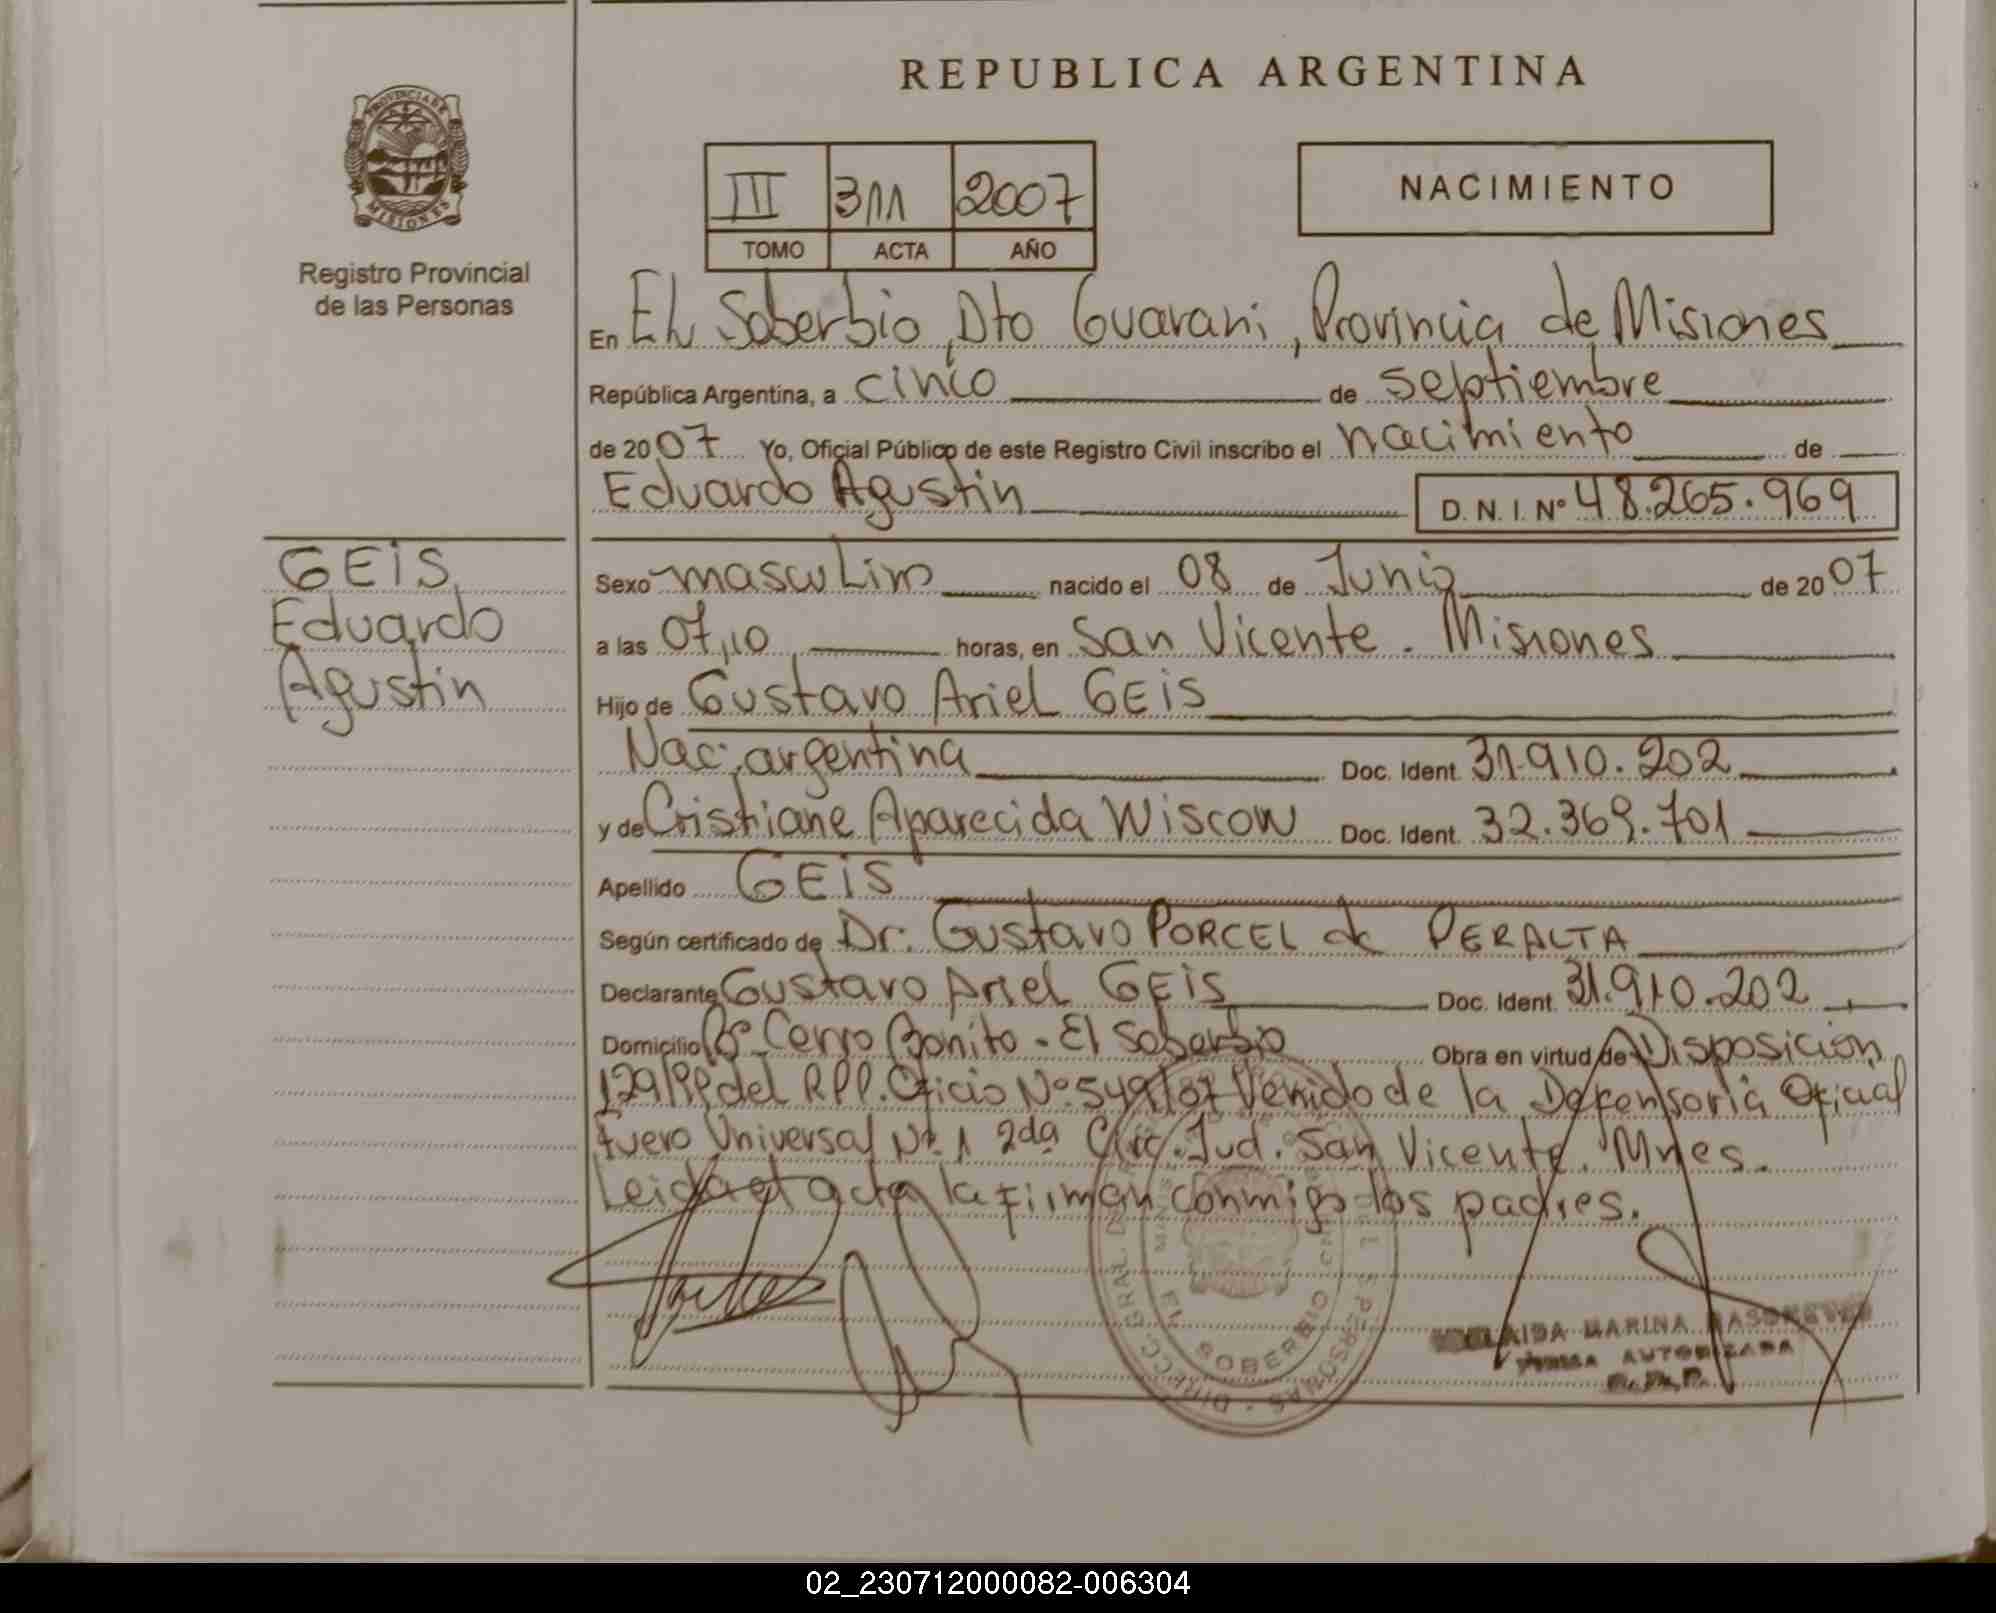 REPUBLICA ARGENTINA
PROVINCIA DE
MISIONES
Registro Provincial
de las Personas
III 311 2007
TOMO ACTA AÑO
NACIMIENTO
En El Soberbio, Dto Guarani, Provincia de Misiones
República Argentina, a cinco de septiembre
de 2007 Yo, Oficial Público de este Registro Civil inscribo el nacimiento de
Eduardo Agustin D.N.I. Nº 48.265.969
GEiS
Eduardo
Agustin
Sexo masculino nacido el 08 de Junio de 2007
a las 07,10 horas, en San Vicente. Misiones
Hijo de Gustavo Ariel GEiS
Nac. argentina Doc. Ident. 31.910.202
y de Cristiane Aparecida Wiscow Doc. Ident. 32.369.701
Apellido GEiS
Según certificado de Dr. Gustavo PORCEL de PERALTA
Declarante Gustavo Ariel GEiS Doc. Ident. 31.910.202
Domicilio Cerro Bonito - El Soberbio Obra en virtud de Disposicion
del RPP. Oficio Nº 549/07 Venido de la Defensoria Oficial
Fuero Universal Nº 1 2da Circ. Jud. San Vicente. Mnes.
Leida el acta la firman conmigo los padres.
EL SOBERBIO
MARINA
FIRMA AUTORIZADA
R.P.P.
02_230712000082-006304